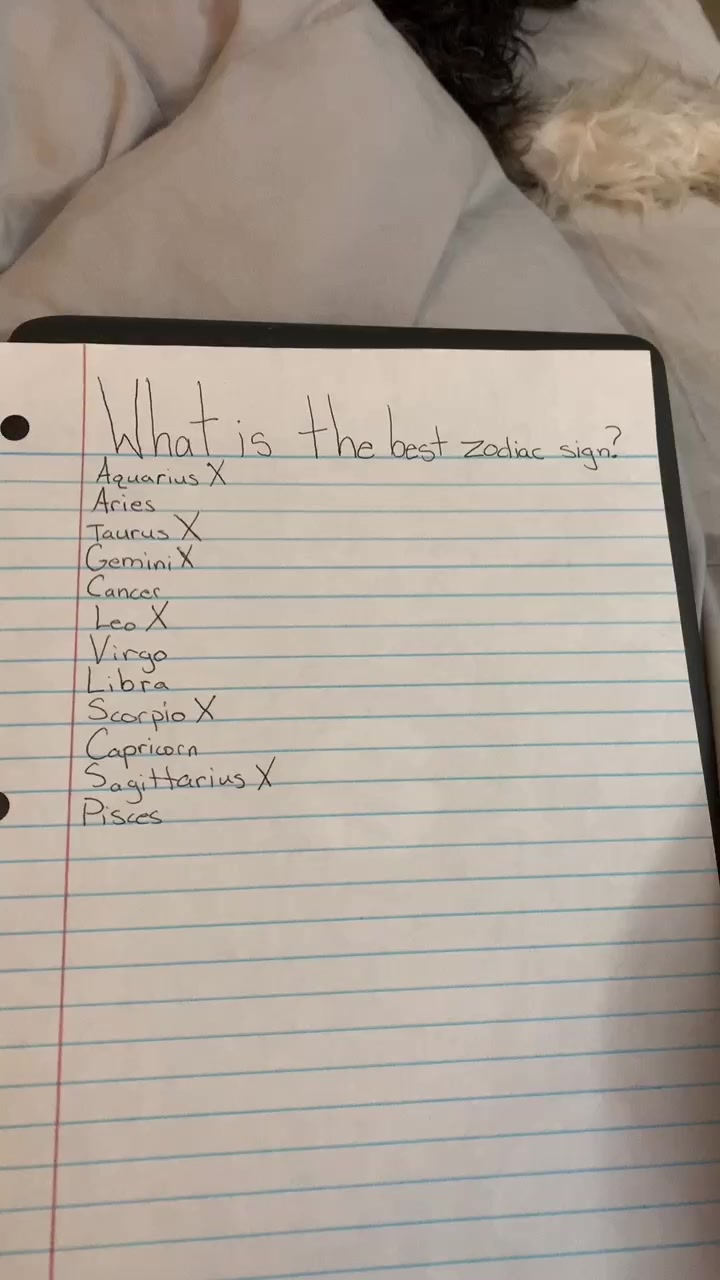 What is the best zodiac sign?
Aquarius X
Aries
Taurus X
Gemini X
Cancer
Leo X
Virgo
Libra
Scorpio X
Capricorn
Sagittarius X
Pisces